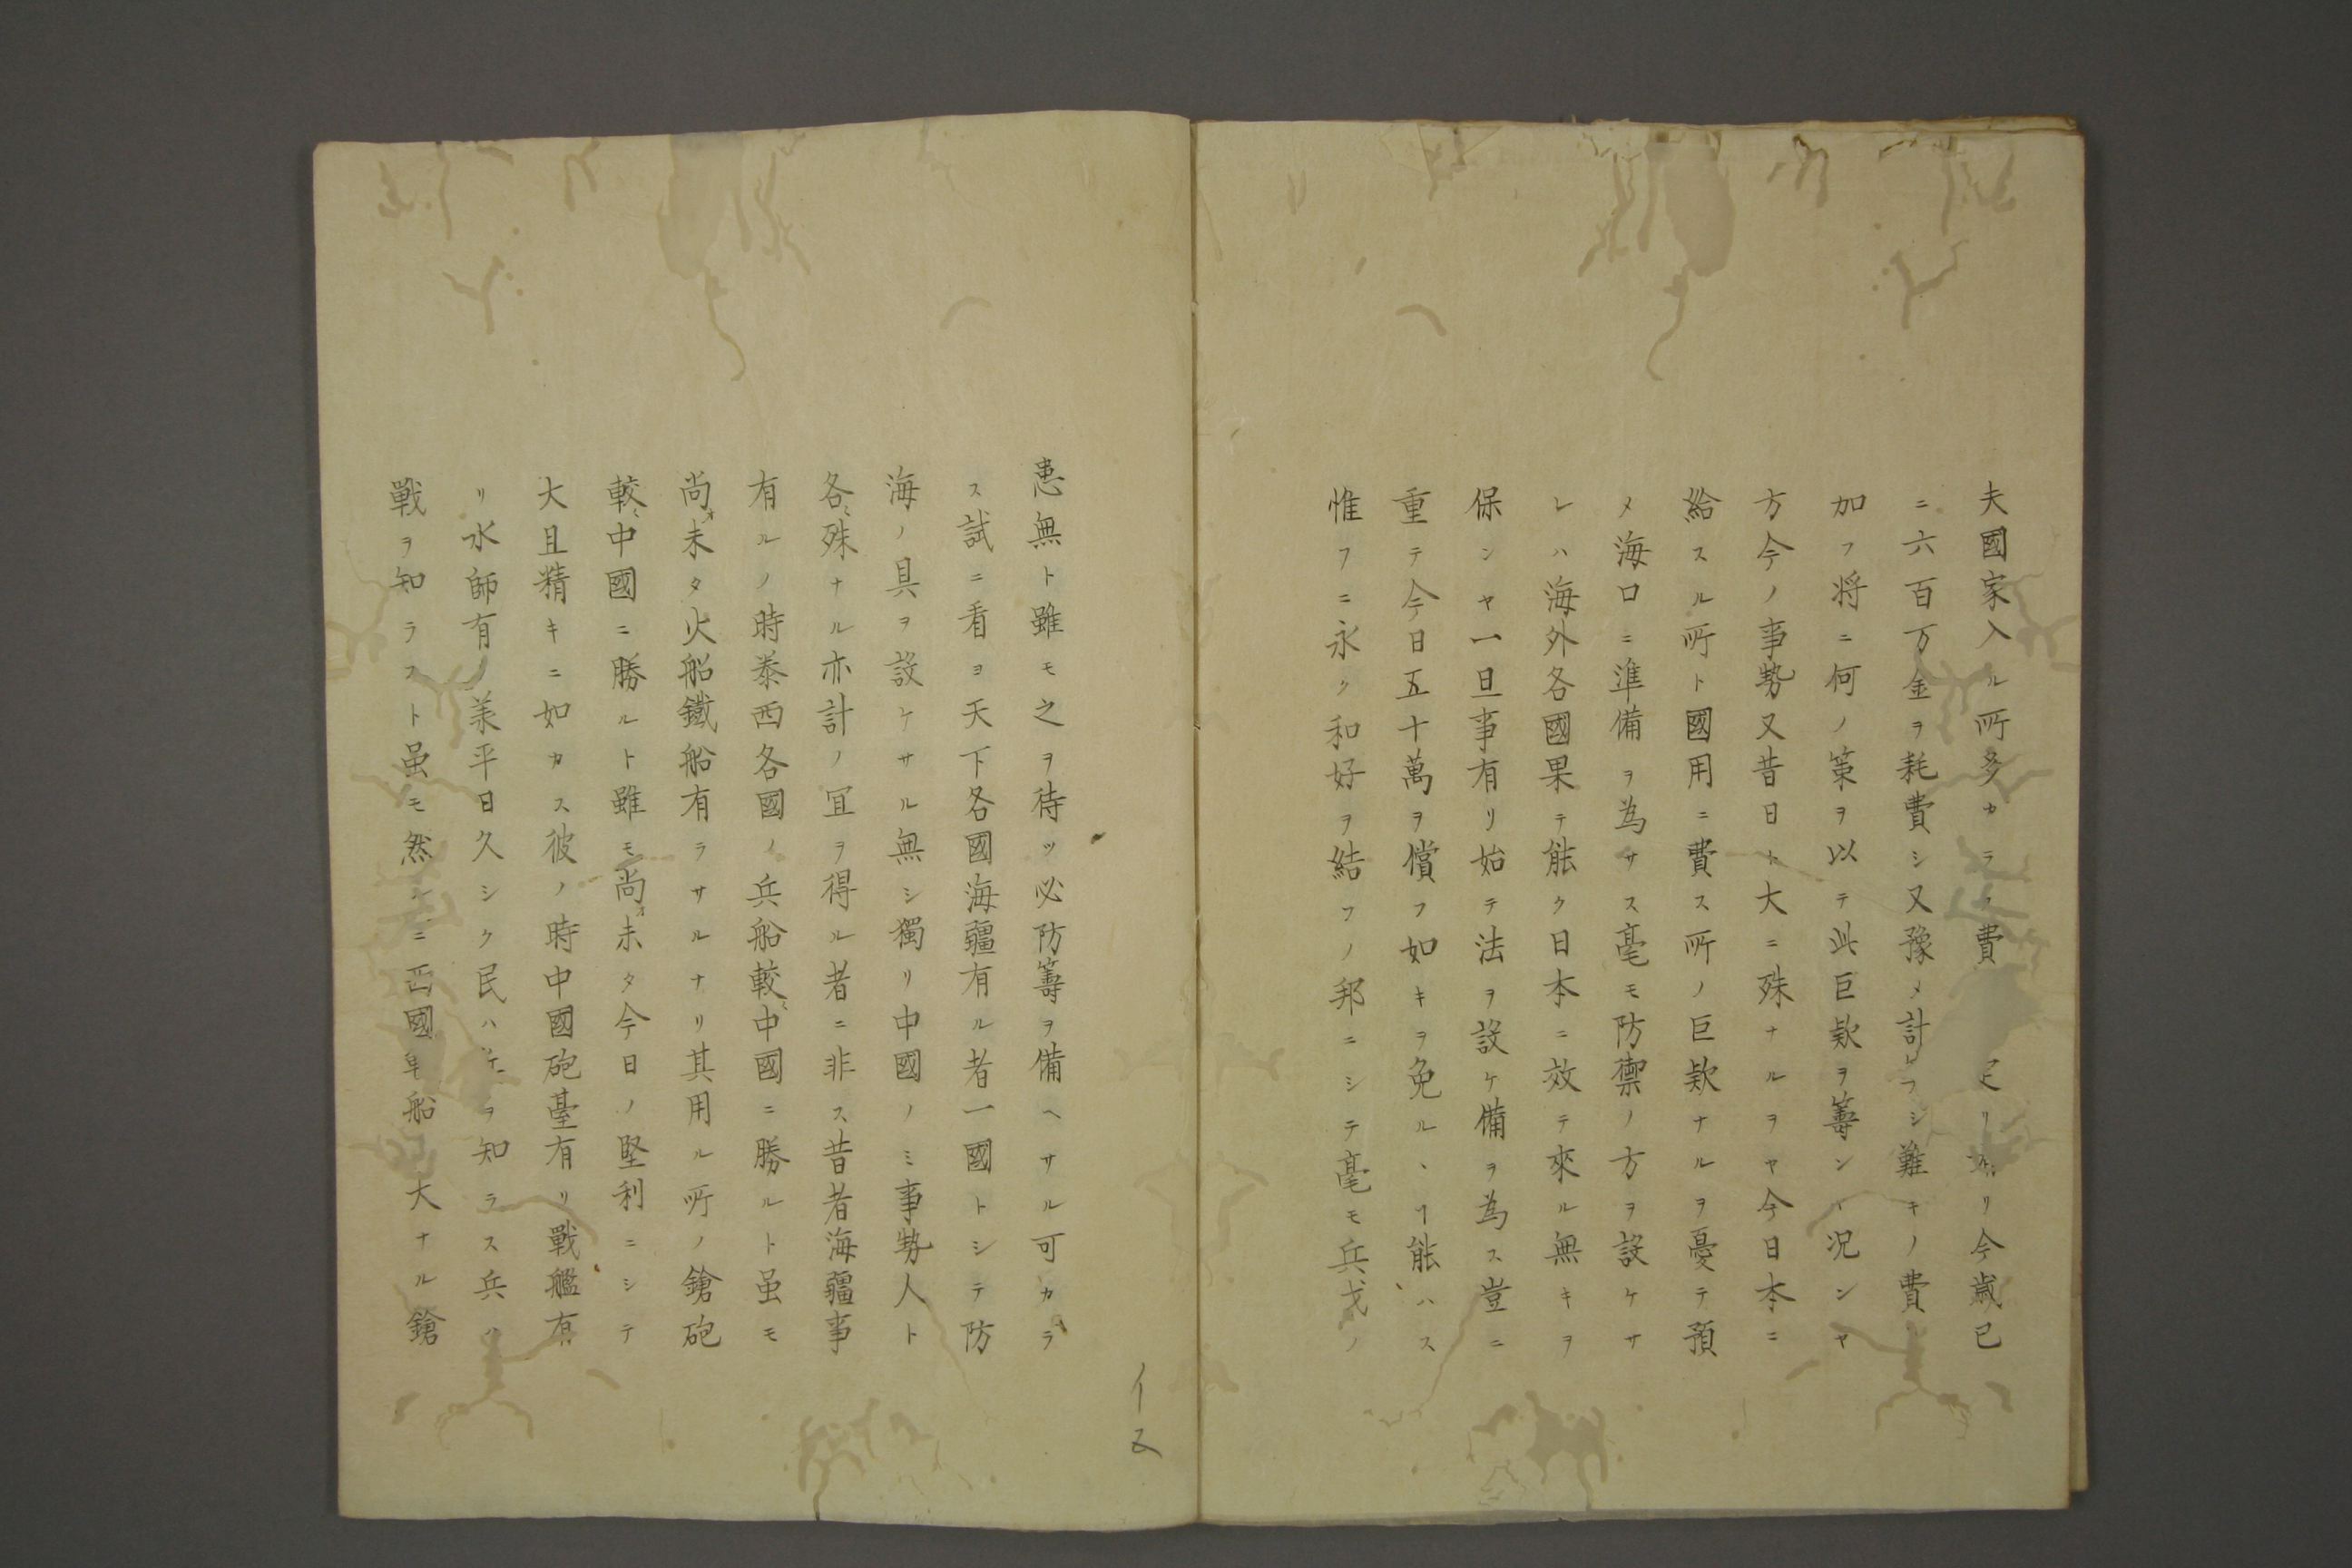 夫國家入ル所多カラ費定リ有リ今歳已
ニ六百万金ヲ耗費シ又豫メ計フシ難キノ費
加フ将ニ何ノ策ヲ以テ此巨欵ヲ籌ン況ンヤ
方今ノ事勢又昔日ト大ニ殊ナルヲヤ今日本ニ
給スル所ト國用ニ費ス所ノ巨欵ナルヲ憂テ預
メ海口ニ準備ヲ為サス毫モ防禦ノ方ヲ設ケサ
レハ海外各國果テ能ク日本ニ效テ來ル無キヲ
保ンヤ一旦事有リ始テ法ヲ設ケ備ヲ為ス豈ニ
重テ今日五十萬ヲ償フ如キヲ免ルヽヿ能ハス
惟フニ永ク和好ヲ結フノ邦ニシテ毫モ兵戈ノ
患無ト雖モ之ヲ待ツ必防籌ヲ備ヘサル可カラ
ス試ニ看ヨ天下各國海疆有ル者一國トシテ防
海ノ具ヲ設ケサル無シ獨リ中國ノミ事勢人ト
各殊ナル亦計ノ冝ヲ得ル者ニ非ス昔者海疆事
有ルノ時泰西各國ノ兵船較中國ニ勝ルト虽モ
尚オ未タ火船鐵船有ラサルナリ其用ル所ノ鎗砲
較中國ニ勝ルト雖モ尚オ未タ今日ノ堅利ニシテ
大且精キニ如カス彼ノ時中國砲臺有リ戰艦有
リ水師有羕平日久シク民ハヲ知ラス兵ハ
戰ヲ知ラフト虽モ然シニ西國船大ナル鎗
イ五